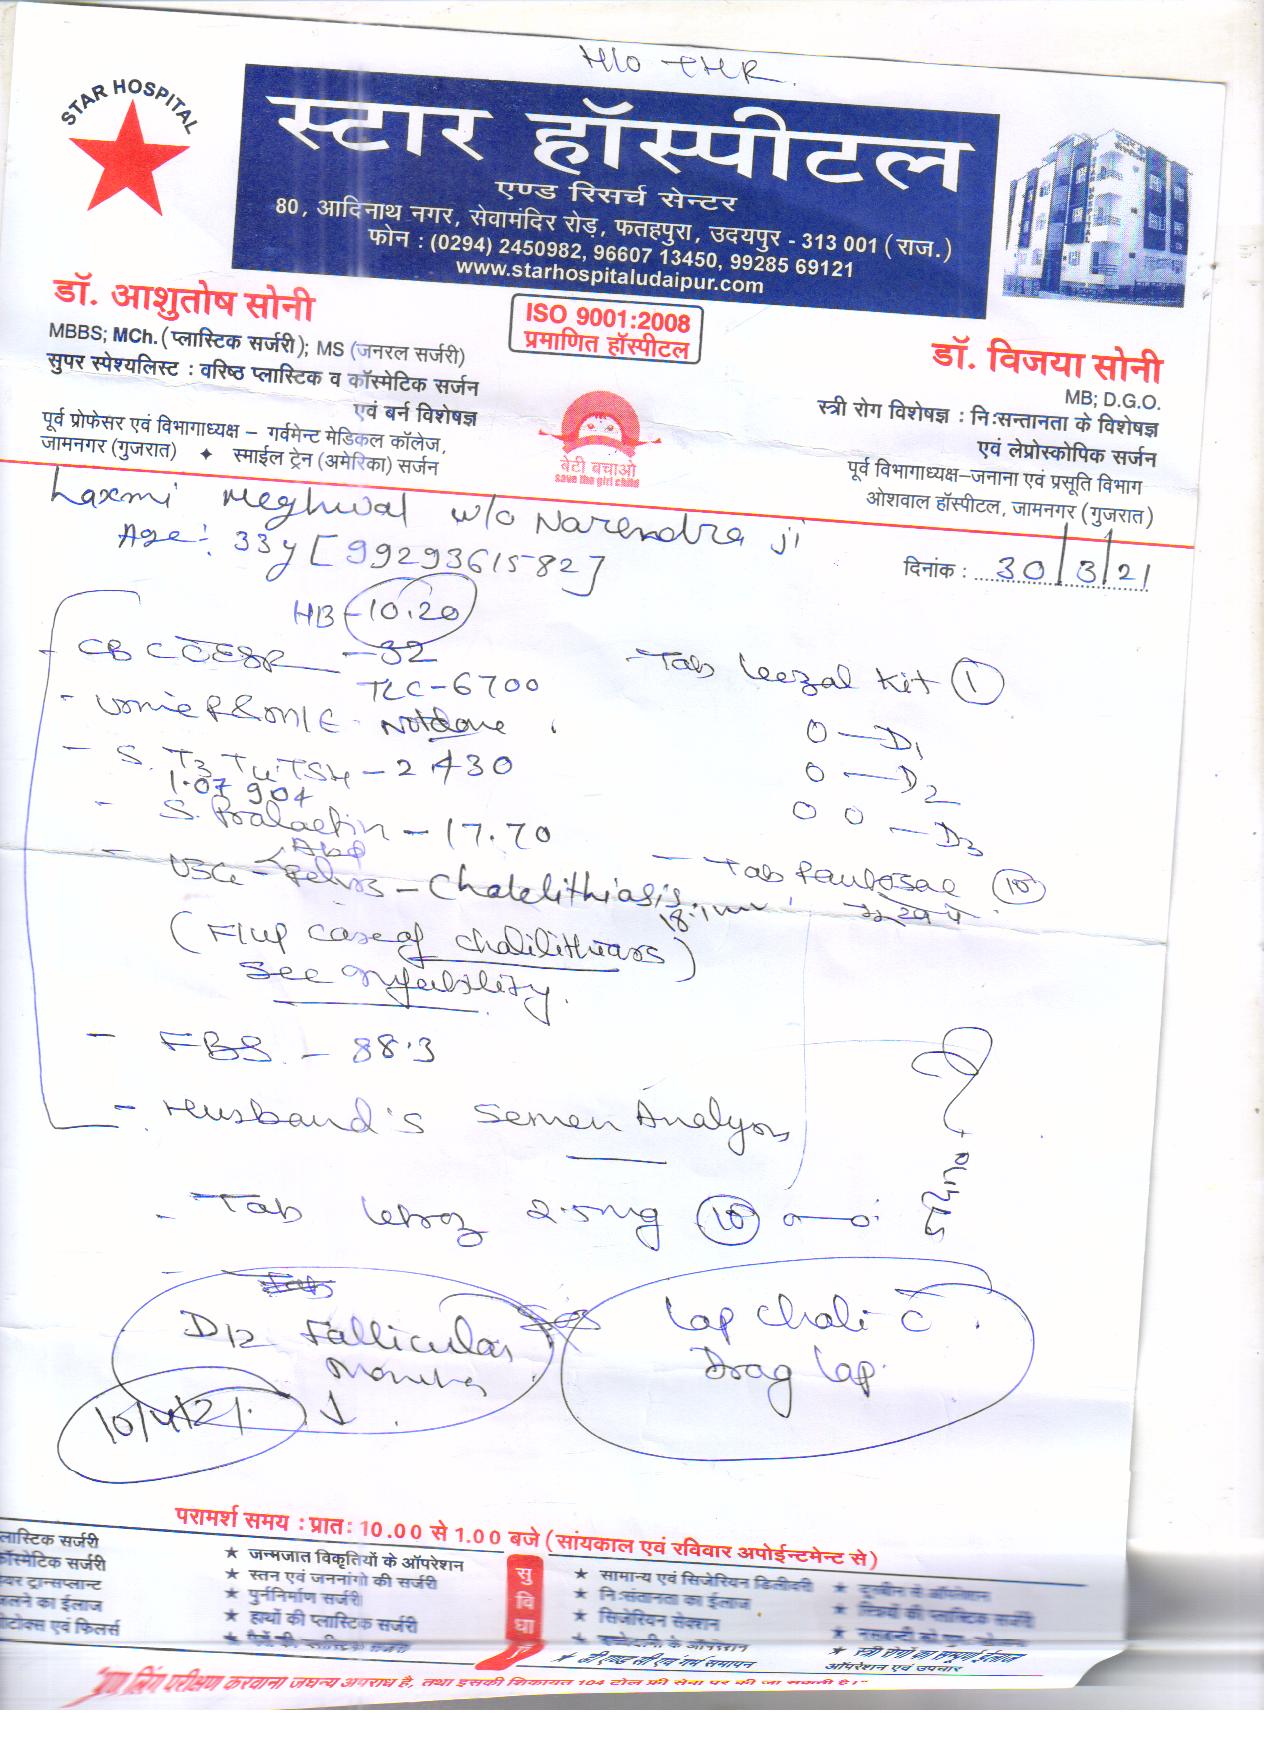 H/O THR
STAR HOSPITAL
स्टार हॉस्पीटल
एण्ड रिसर्च सेन्टर
80, आदिनाथ नगर, सेवामंदिर रोड़, फतहपुरा, उदयपुर - 313 001 (राज.)
फोन : (0294) 2450982, 96607 13450, 99285 69121
www.starhospitaludaipur.com
डॉ. आशुतोष सोनी
MBBS; MCh. (प्लास्टिक सर्जरी); MS (जनरल सर्जरी)
सुपर स्पेश्यलिस्ट : वरिष्ठ प्लास्टिक व कॉस्मेटिक सर्जन
एवं बर्न विशेषज्ञ
पूर्व प्रोफेसर एवं विभागाध्यक्ष – गर्वमेन्ट मेडिकल कॉलेज,
जामनगर (गुजरात) ✦ स्माईल ट्रेन (अमेरिका) सर्जन
ISO 9001:2008
प्रमाणित हॉस्पीटल
बेटी बचाओ
save the girl child
डॉ. विजया सोनी
MB; D.G.O.
स्त्री रोग विशेषज्ञ : नि:सन्तानता के विशेषज्ञ
एवं लेप्रोस्कोपिक सर्जन
पूर्व विभागाध्यक्ष–जनाना एवं प्रसूति विभाग
ओशवाल हॉस्पीटल, जामनगर (गुजरात)
Laxmi Meghwal w/o Narendra ji
Age: 33y [9929361582]
दिनांक : 30/3/21
HB - 10.20
- CBC C ESR - 32
TLC - 6700
- Urine R & M/E - Not done
- S. T3 T4 TSH - 2.430
1.07 9.04
- S. Prolactin - 17.70
- USG - Abd
Pelvis - Cholelithiasis
18.1mm
(F/up case of cholilithiasis)
Sec Infertility.
- FBS - 88.3
- Husband's Semen Analysis
- Tab Letroz 2.5mg (10) 0—0
D12 Follicular
10/4/21
- Tab Kit (1)
0 — D1
0 — D2
0 0 — D3
- Tab (10)
Lap Choli C
Diag Lap.
परामर्श समय : प्रात: 10.00 से 1.00 बजे (सांयकाल एवं रविवार अपोईन्टमेन्ट से)
लास्टिक सर्जरी
कॉस्मेटिक सर्जरी
यर ट्रान्सप्लान्ट
जलने का ईलाज
ोटोक्स एवं फिलर्स
★ जन्मजात विकृतियों के ऑपरेशन
★ स्तन एवं जननांगो की सर्जरी
★ पुर्ननिर्माण सर्जरी
★ हाथों की प्लास्टिक सर्जरी
सुविधाएं
★ सामान्य एवं सिजेरियन डिलीवरी
★ नि:संतानता का ईलाज
★ सिजेरियन सेक्शन
★ डी एण्ड सी एवं गर्भ समापन
★ दूरबीन से ऑपरेशन
★ स्त्रियों की प्लास्टिक सर्जरी
★ स्त्री रोगों का सम्पूर्ण ईलाज
ऑपरेशन एवं उपचार
"भ्रूण लिंग परीक्षण करवाना जघन्य अपराध है, तथा इसकी शिकायत 104 टोल फ्री सेवा पर की जा सकती है।"